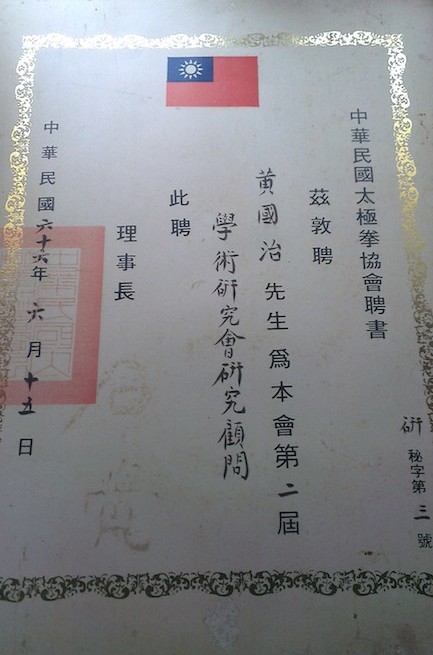 中華民國太極拳協會聘書
研秘字第三號
茲敦聘
黃國治先生爲本會第二屆
學術研究會研究顧問
此聘
理事長
中華民國六十六年六月十五日